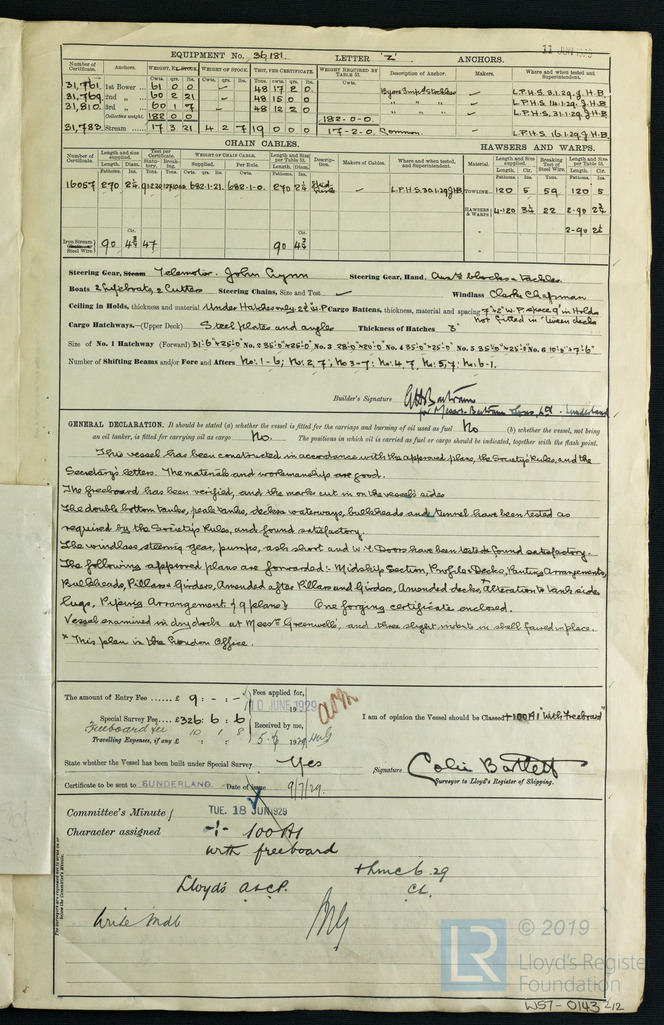 11 JUN 1929
EQUIPMENT No. 36181. LETTER "Z" ANCHORS.
Number of Certificate. Anchors. WEIGHT, EX STOCK. WEIGHT OF STOCK. TEST, PER CERTIFICATE. WEIGHT REQUIRED BY TABLE 53. Description of Anchor. Makers. Where and when tested and Superintendent.
Cwts. qrs. lbs. Cwts. qrs. lbs. Tons. Cwts. qrs. lbs. Cwts.
31,761 1st Bower 61 0 0 - 48 17 2 0 Byers Imp Stockless L.P.H.S. 3.1.29. J.H.B.
31,769 2nd " 60 2 21 - 48 15 0 0 " " " L.P.H.S. 14.1.29. J.H.B.
31,810 3rd " 60 1 7 - 48 12 2 0 " " " L.P.H.S. 31.1.29. J.H.B.
Collective weight 182 0 0 182-0-0
31,783 Stream 17 3 21 4 2 7 19 0 0 0 17-2-0 Common L.P.H.S. 16.1.29. J.H.B.
CHAIN CABLES. HAWSERS AND WARPS.
Number of Certificate. Length and size supplied. Test per Certificate. WEIGHT OF CHAIN CABLE. Length and Size per Table 53. Description. Makers of Cables. Where and when tested, and Superintendent. Material. Length and Size supplied. Breaking Test of Steel Wire. Length and Size per Table 53.
Fathoms. Ins. Supplied. Per Rule. Fathoms. Ins. Fathoms. Ins. Tons. Fathoms. Ins.
16057 270 2¼ 682-1-21 682-1-0 270 2¼ L.P.H.S. 30.1.29 J.H.B. TOWLINE 120 5 59 120 5
HAWSERS & WARPS 4-120 22 2-90
2-90
Iron Stream Steel Wire 90 47 90
Steering Gear, Steam Telemotor. John Lynn Steering Gear, Hand, Aux. blocks & tackles
Boats 2 Lifeboats, 2 Cutters Steering Chains, Size and Test - Windlass Clarke Chapman
Ceiling in Holds, thickness and material Under Hatches only 2½" W.P. Cargo Battens, thickness, material and spacing 7"x2" W.P. space 9" in Holds
not fitted in 'tween decks
Cargo Hatchways.—(Upper Deck) Steel plates and angles Thickness of Hatches 3"
Size of No. 1 Hatchway (Forward) 31'6"x25'0" No. 2 35'0"x25'0" No. 3 28'0"x20'0" No. 4 35'0"x25'0" No. 5 No. 6
Number of Shifting Beams and/or Fore and Afters No: 1-6; No: 2, 7; No 3-7; No: 4, 7, No: 5, 7; No: 6-1.
Builder's Signature
for Messrs Bartram Sons, Ltd. Sunderland
GENERAL DECLARATION. It should be stated (a) whether the vessel is fitted for the carriage and burning of oil used as fuel No (b) whether the vessel, not being
an oil tanker, is fitted for carrying oil as cargo No. The positions in which oil is carried as fuel or cargo should be indicated, together with the flash point.
This vessel has been constructed in accordance with the approved plans, the Society's Rules, and the
Secretary's letters. The materials and workmanship are good.
The freeboard has been verified, and the marks cut in on the vessel's sides
The double bottom tanks, peak tanks, decks & waterways, bulkheads and tunnel have been tested as
required by the Society's Rules, and found satisfactory.
The windlass, steering gear, pumps, ash shoot and W.T. Doors have been tested & found satisfactory.
The following approved plans are forwarded:- Midship Section, Profile & Decks, Panting Arrangements,
Bulkheads, Pillars & Girders, Amended after Pillars and Girders, Amended decks, *Alteration to tank side
lugs, Piping Arrangement (9 plans). One forging certificate enclosed.
Vessel examined in dry dock at Messrs Greenwells', and three slight indents in shell faired in place.
* This plan in the London Office.
The amount of Entry Fee .... £ 9 : - : - Fees applied for,
10 JUNE 1929
Special Survey Fee .. £326 : 6 : 6 Received by me,
Freeboard fee 10 1 8
Travelling Expenses, if any £ : :
I am of opinion the Vessel should be Classed +100A1 "With Freeboard"
State whether the Vessel has been built under Special Survey Yes Signature Colin Bartlett
Surveyor to Lloyd's Register of Shipping.
Certificate to be sent to SUNDERLAND. Date of issue 9/7/29.
Committee's Minute TUE. 18 JUN 1929
Character assigned +100A1
with freeboard
Lloyd's A&CP. +LMC 6.29
CL.
Write Mdb
© 2019
LR Lloyd's Register Foundation
WS7-0143 2/2